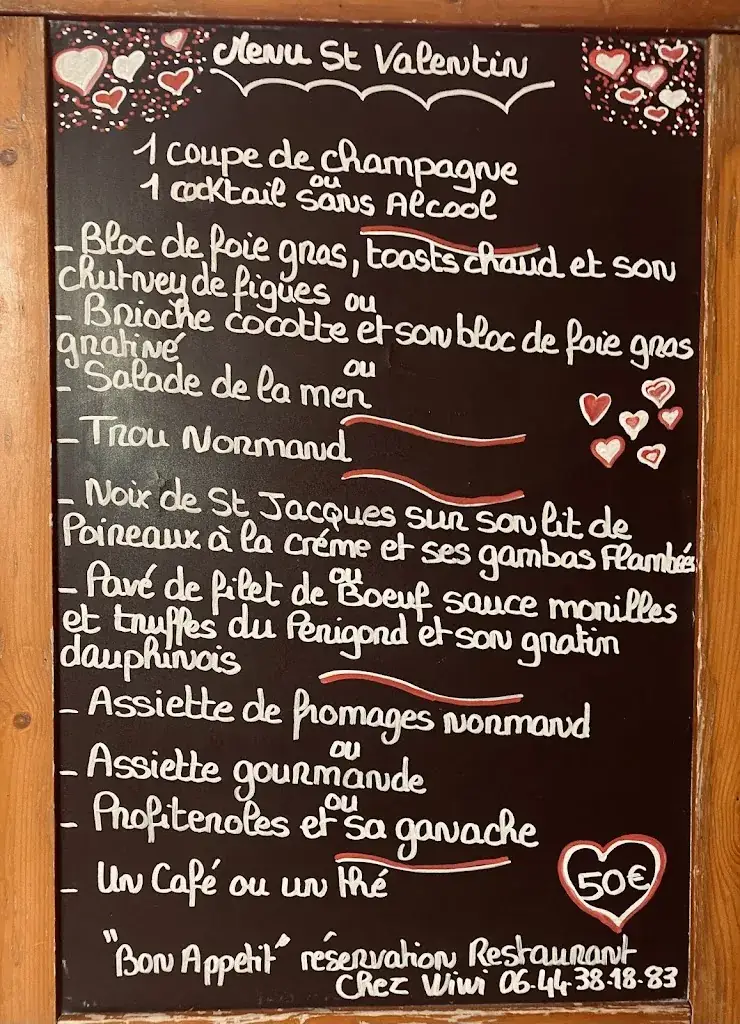 Menu St Valentin
1 coupe de champagne
ou
1 cocktail sans Alcool
- Bloc de foie gras, toasts chaud et son
chutney de figues ou
- Brioche cocotte et son bloc de foie gras
gratiné
ou
- Salade de la mer
- Trou Normand
- Noix de St Jacques sur son lit de
Poireaux à la créme et ses gambas Flambées
ou
- Pavé de filet de Boeuf sauce morilles
et truffes du Perigord et son gratin
dauphinois
- Assiette de fromages normand
ou
- Assiette gourmande
ou
- Profiteroles et sa ganache
- Un Café ou un thé
50€
"Bon Appetit" réservation Restaurant
Chez Wiwi 06.44.38.18.83